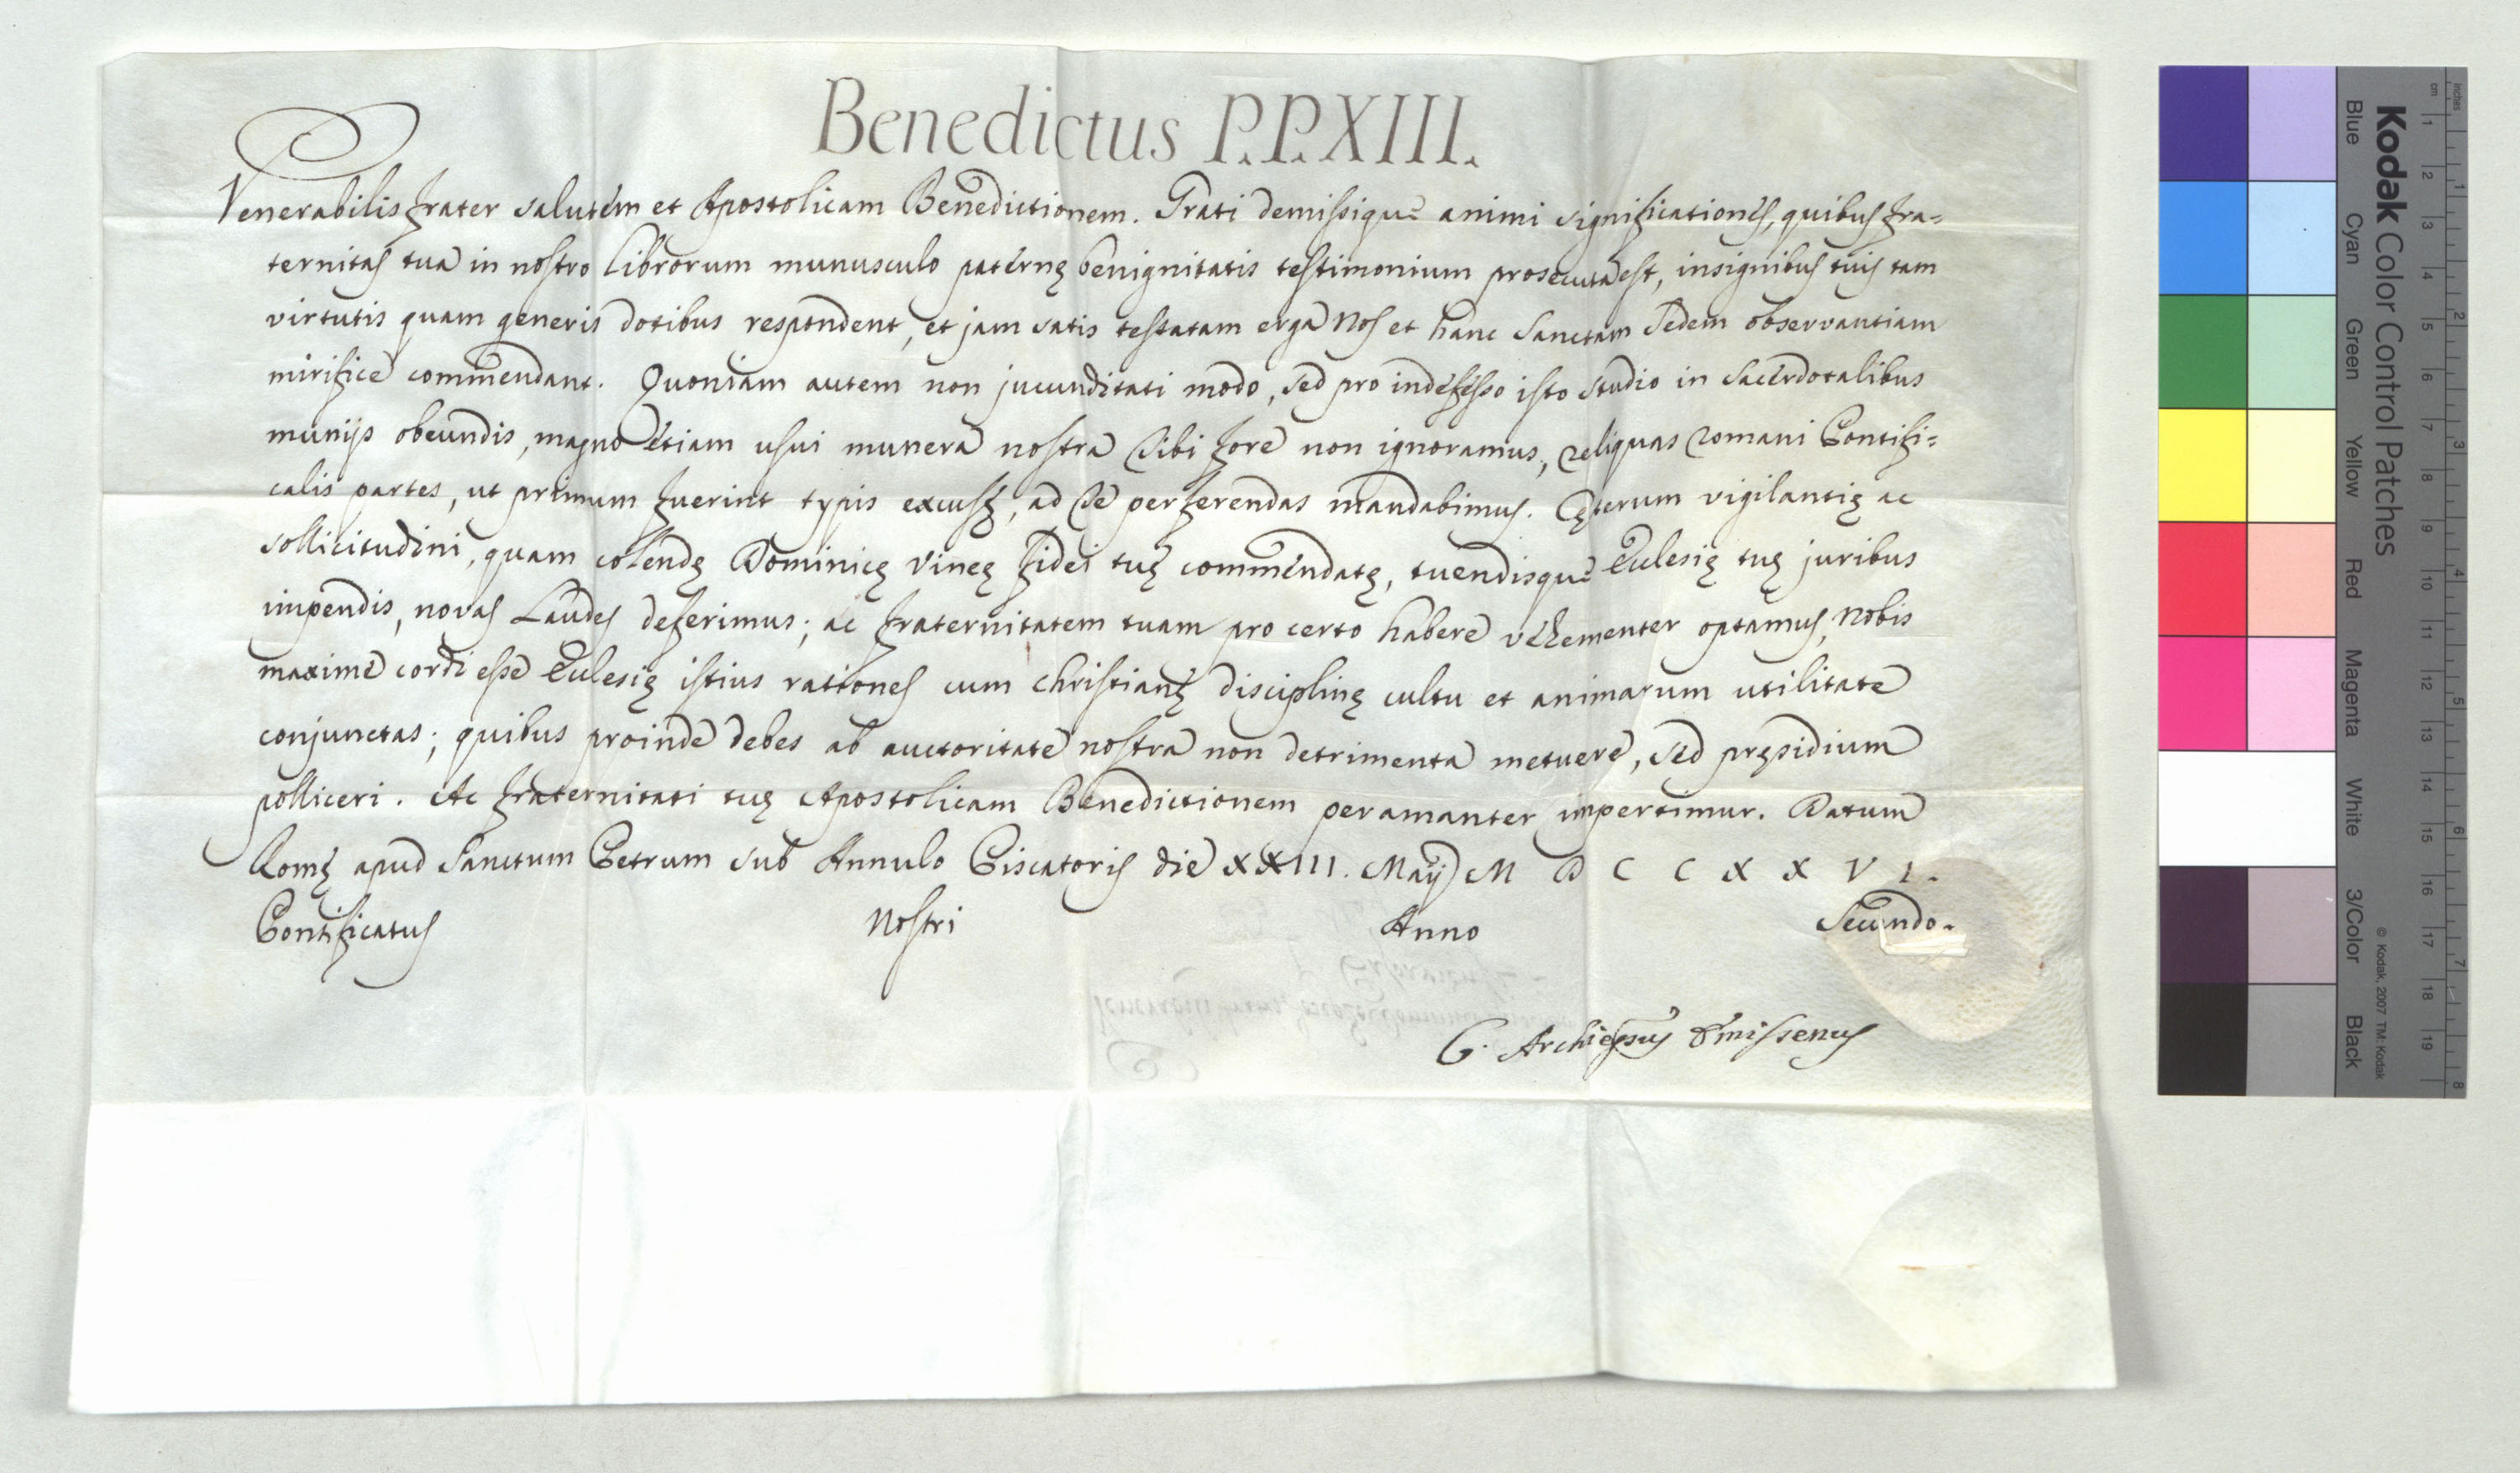 Benedictus P.P. XIII.
Venerabilis frater salutem et Apostolicam Benedictionem. Grati demissique animi significationes, quibus fra=
ternitas tua in nostro librorum munusculo paternę benignitatis testimonium prosecuta est, insignibus tuis tam
virtutis quam generis dotibus respondent, et jam satis testatam erga Nos et hanc Sanctam Sedem observantiam
mirifice commendant. Quoniam autem non jucunditati modo, sed pro indefesso isto studio in Sacerdotalibus
munijs obeundis, magno etiam usui munera nostra Tibi fore non ignoramus, reliquas Romani Pontifi=
calis partes, ut primum fuerint typis excusę, ad Te perferendas mandabimus. Cęterum vigilantię ac
sollicitudini, quam colendę Dominicę Vineę fidei tuę commendatę, tuendisque Ecclesię tuę juribus
impendis, novas Laudes deferimus; ac fraternitatem tuam pro certo habere vehementer optamus, Nobis
maxime cordi esse Ecclesię istius rationes cum Christianę disciplinę cultu et animarum utilitate
conjunctas; quibus proinde debes ab auctoritate nostra non detrimenta metuere, sed pręsidium
polliceri. Ac fraternitati tuę Apostolicam Benedictionem peramanter impertimur. Datum
Romę apud Sanctum Petrum sub Annulo Piscatoris die XXIII. Maij M D C C X X V I.
Pontificatus Nostri Anno Secundo.
C. Archiepũs Emissenus
Kodak Color Control Patches
Blue Cyan Green Yellow Red Magenta White 3/Color Black
© Kodak, 2007 TM: Kodak
inches 1 2 3 4 5 6 7 8
cm 1 2 3 4 5 6 7 8 9 10 11 12 13 14 15 16 17 18 19